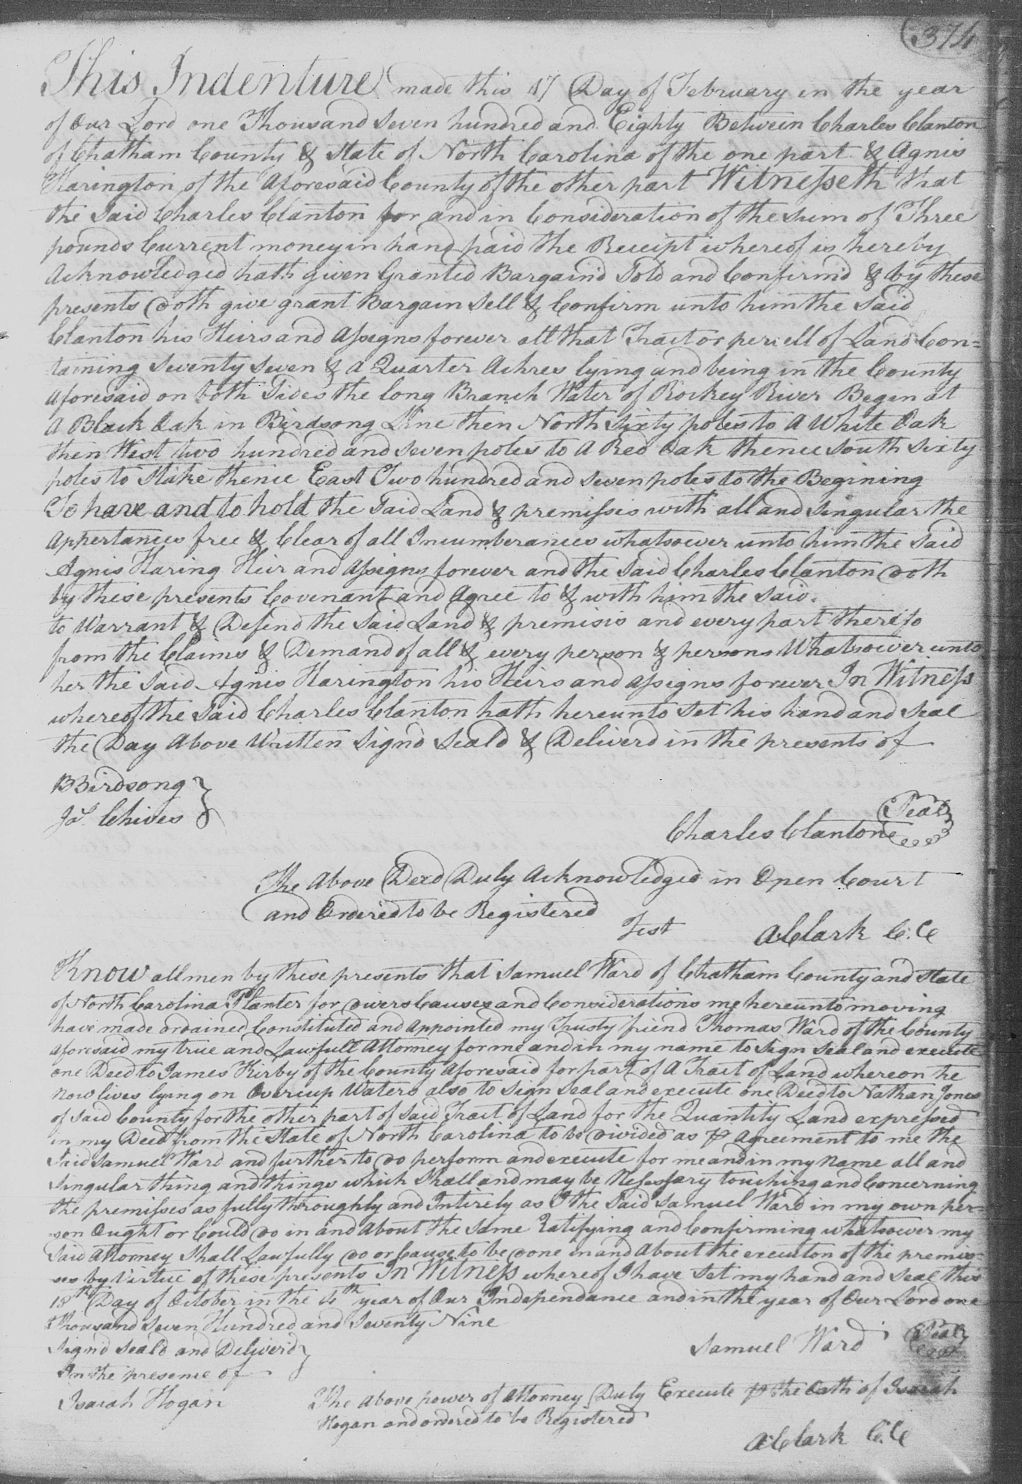 374
This Indenture made this 17 Day of February in the year
of Our Lord one Thousand Seven hundred and Eighty Between Charles Clanton
of Chatham County & State of North Carolina of the one part & Agnis
Harington of the Aforesaid County of the other part Witnesseth that
the Said Charles Clanton for and in Consideration of the sum of Three
pounds Current money in hand paid the Receipt whereof is hereby
Acknowledged hath given Granted Bargaind Sold and Confirmd & by these
presents doth give grant Bargain Sell & Confirm unto him the Said
Clanton his Heirs and Assigns forever all that Tract or percell of Land Con=
=taining Seventy Seven & a Quarter Ackres lying and being in the County
aforesaid on both Sides the long Branch Water of Rockey River Begin at
A Black Oak in Birdsong Line then North Sixty poles to A White Oak
then West two hundred and seven poles to A Red Oak thence South Sixty
poles to Stake thence East Two hundred and Seven poles to the Begining
To have and to hold the Said Land & premisses with all and Singular the
Appertances free & Clear of all Incumberances whatsoever unto him the Said
Agnis Haring Heir and Assigns forever and the Said Charles Clanton doth
by these presents Covenant and Agree to & with him the Said.
to Warrant & Defend the Said Land & premisis and every part thereto
from the Claims & Demand of all & every person & persons Whatsoever unto
her the Said Agnis Harington his Heirs and assigns forever In Witness
whereof the Said Charles Clanton hath hereunto Set his hand and Seal
the Day Above Written Sign'd Seald & Deliverd in the presents of
B Birdsong
Jas. Chives
Charles Clanton Seal
The Above Deed Duly Acknowledged in Open Court
and Ordered to be Registered
Test A Clark C.C
Know all men by these presents that Samuel Ward of Chatham County and State
of North Carolina Planter for divers Causes and Considerations me hereunto moving
have made ordained Constituted and appointed my Trusty friend Thomas Ward of the County
aforesaid my true and Lawfull Attorney for me and in my name to Sign Seal and execute
one Deed to James Kirby of the County Aforesaid for part of A Tract of Land whereon he
now lives lying on Overcup Waters also to Sign Seal and execute one Deed to Nathan Jones
of Said County for the other part of Said Tract of Land for the Quantity Land expressed
in my Deed from the State of North Carolina to be divided as pr agreement to me the
Said Samuel Ward and further to do perform and execute for me and in my Name all and
Singular thing and things which Shall and may be Nessesary touching and Concerning
the premisses as fully throughly and Intirely as I the Said Samuel Ward in my own per-
-son Ought or Could do in and About the Same Ratifying and Confirming whatsoever my
Said Attorney Shall Lawfully do or Cause to be done in and About the execution of the premis-
ses by Virtue of these presents In Witness whereof I have Set my hand and Seal this
18th Day of October in the 4th year of Our Independance and in the year of Our Lord one
thousand Seven Hundred and Seventy Nine
Sign'd Seald and Deliverd
In the presence of
Samuel Ward Seal
Isaiah Hogan
The Above power of Attorney Duly Execute pr the Oath of Isaiah
Hogan and ordered to be Registered
A Clark C.C